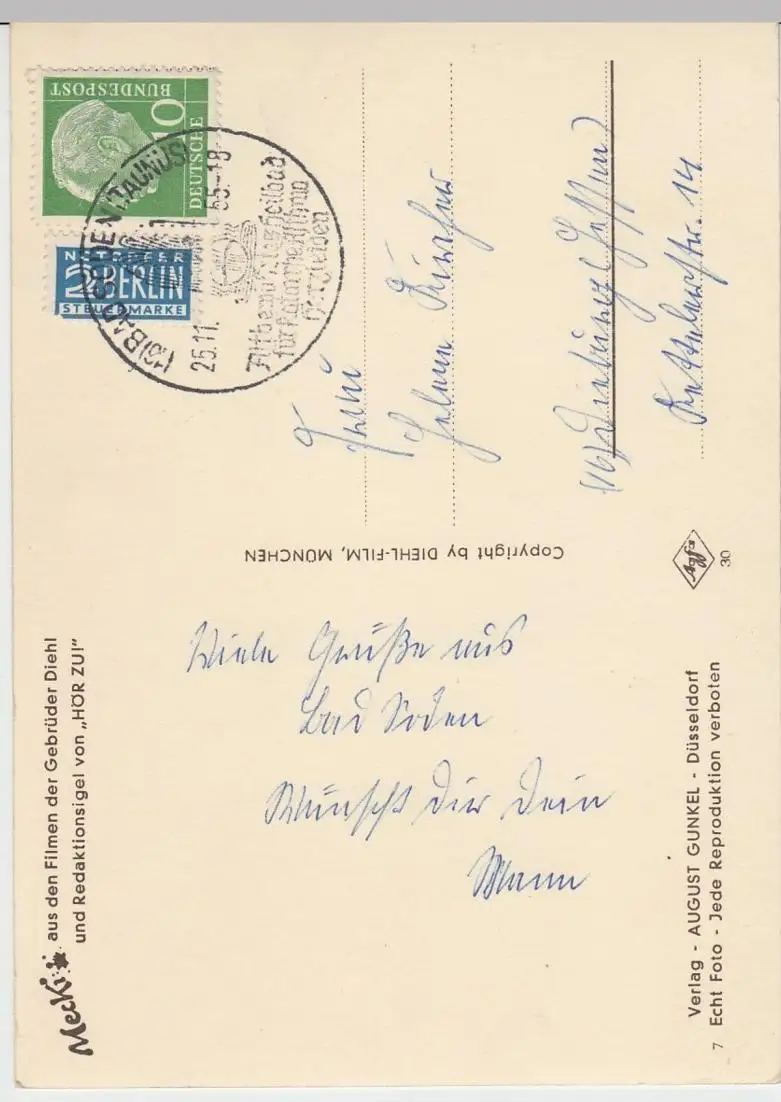 BUNDESPOST
10
DEUTSCHE
NOTOPFER
2 BERLIN
STEUERMARKE
(16) BAD SODEN (TAUNUS)
25.11. 55-18
Altbewährtes Heilbad
für Katarrhe Asthma
Herzleiden
Frau
Helene
(16) (Hessen)
Kettelerstr. 14
Copyright by DIEHL-FILM, MÜNCHEN
Agfa
30
Viele Grüße aus
Bad Soden
Wünscht Dir Dein
Mann
Mecki
aus den Filmen der Gebrüder Diehl
und Redaktionsigel von „HÖR ZU!"
Verlag - AUGUST GUNKEL - Düsseldorf
7 Echt Foto - Jede Reproduktion verboten